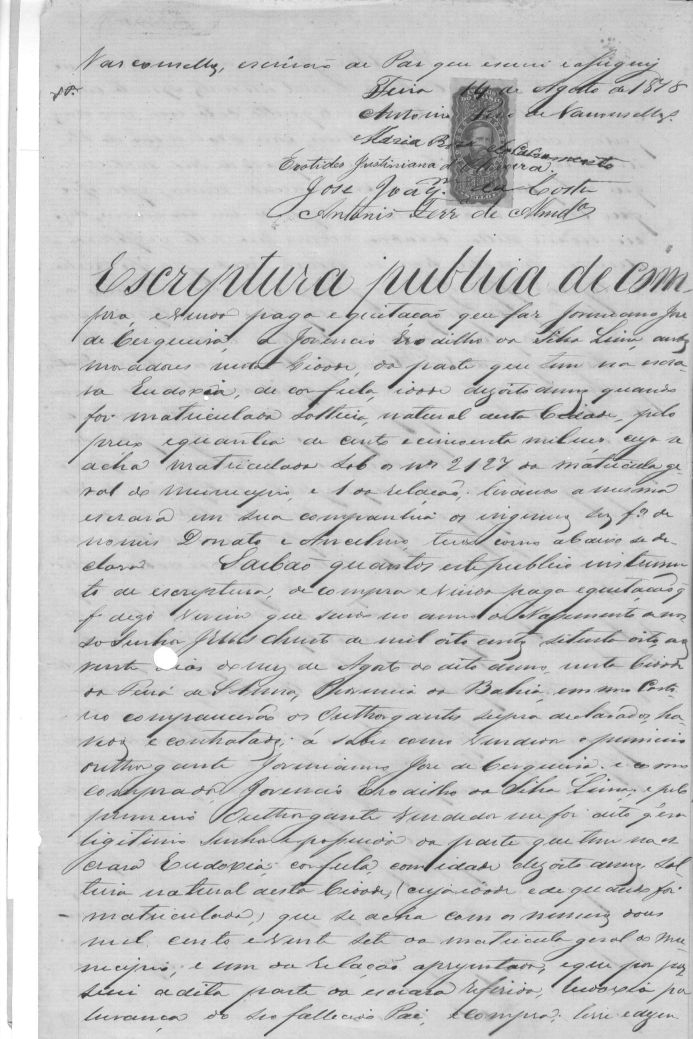 Vasconcellos, escrivão de Paz que escrevi e assignej
Feira 14 de Agosto de 1878
Antonio José de Vasconcellos
Maria Rosa do Nascimento
Erotides Justiniana de Oliveira
Jose Joaqm da Costa
Antonio Ferr de Almda
Escriptura publica de com-
pra, e venda paga e quitacaõ que faz Jormiano Jose
de Cerqueira, a Jovencio Erodilho da Silva Lima, ambos
moradores nesta Cidade, da parte que tem na escra-
va Eudoxia, de cor fula, idade dezoito annos quando
foi matriculada solteira, natural desta Cidade, pelo
preço e quantia de cento e cincoenta mil reis cuja se
acha matriculada sob os nos 2127 da matricula ge-
ral do municipio, e 1 da relação. Levando a mesma
escrava em sua companhia os ingenuos seus fos de
nomes Donato e Ancelmo, tudo como abaixo se de-
clara Saibão quantos este publico instrumen-
to de escriptura, de compra e venda paga e quitação
digo virem que sendo no anno do Nascimento de nos-
so Senhor Jesus Christo de mil oito centos setenta oito aos
vinte dias do mez de Agosto do dito anno, nesta Cidade
da Feira de S. Anna, Provincia da Bahia, em meo Carto-
rio comparecerão os Outhorgantes supra declarados, ha-
vidos e contratados; á saber como vendedor o primeiro
outhorgante Jormiano Jose de Cerqueira e como
comprador Jovencio Erodilho da Silva Lima; e pelo
primeiro Outhorgante vendedor me foi dito q' era
ligitimo senhor e possuidor da parte que tem na es-
crava Eudoxia; cor fula, com idade dezoito annos, sol-
teira natural desta Cidade, (cuja idade e de quando foi
matriculada,) que se acha com os numeros dous
mil cento e vinte sete da matricula geral do mu-
nicipio, e um da relação apresentada, e que por pos-
suir a dita parte da escrava referida, havida por
herança do seo fallecido Pai, e compra; livre e dezem